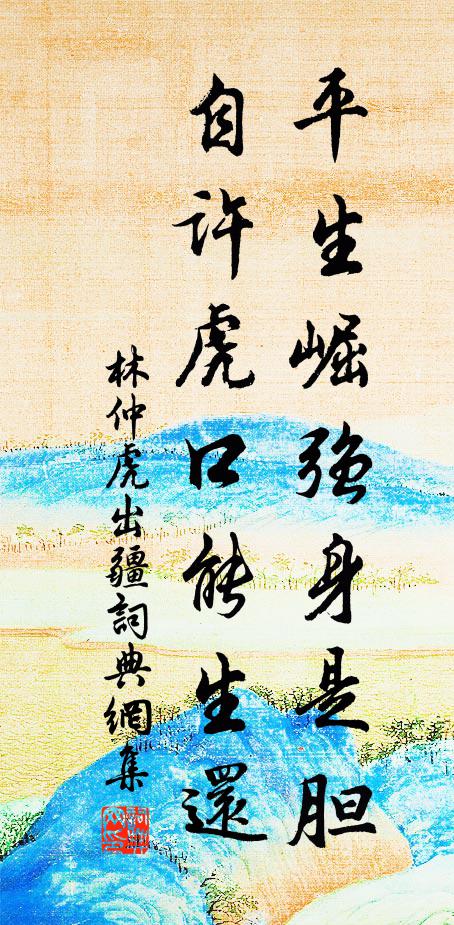 平生崛强身是胆
自许虎口能生還
林仲虎出疆詞典網集